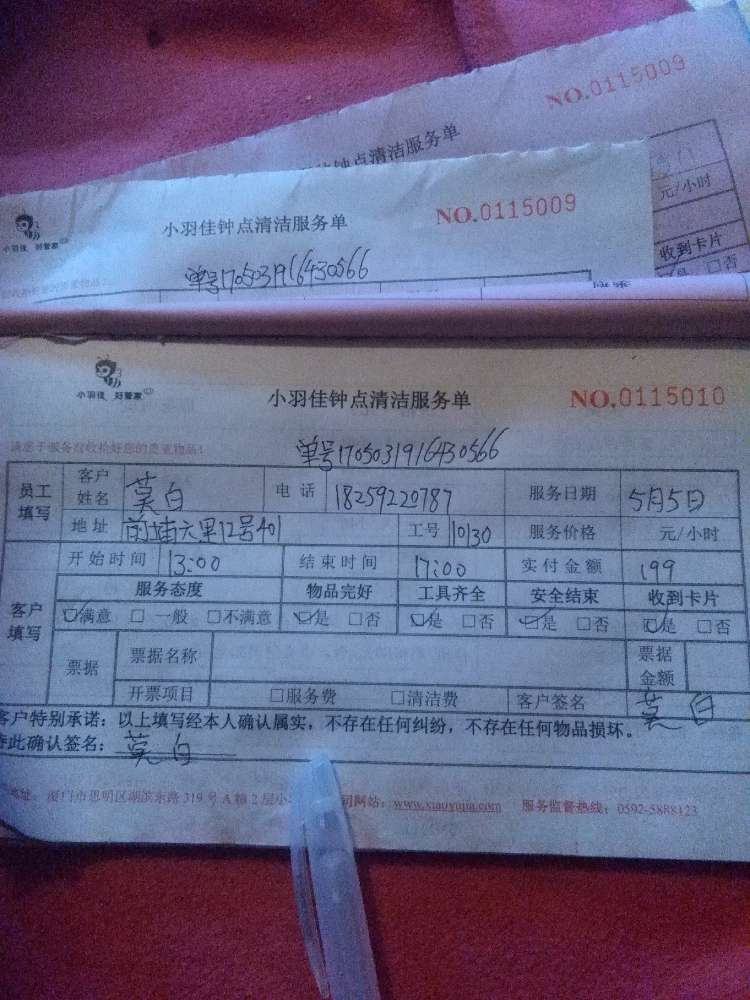 NO.0115009
钟点清洁服务单
元/小时
收到卡片
是 □否
小羽佳 好管家
小羽佳钟点清洁服务单
NO.0115009
单号170503191643​0566
小羽佳 好管家
小羽佳钟点清洁服务单
NO.0115010
单号1705031916430566
员工填写 客户姓名 莫白 电话 18259220787 服务日期 5月5日
地址 前埔六里12号401 工号 1030 服务价格 元/小时
客户填写 开始时间 13:00 结束时间 17:00 实付金额 199
服务态度 物品完好 工具齐全 安全结束 收到卡片
☑满意 □一般 □不满意 ☑是 □否 ☑是 □否 ☑是 □否 ☑是 □否
票据 票据名称 票据金额
开票项目 □服务费 □清洁费 客户签名 莫白
客户特别承诺：以上填写经本人确认属实，不存在任何纠纷，不存在任何物品损坏。
在此确认签名：莫白
地址：厦门市思明区湖滨东路319号A幢2层小 司网站：www.xiaoyujia.com 服务监督热线：0592-5888123